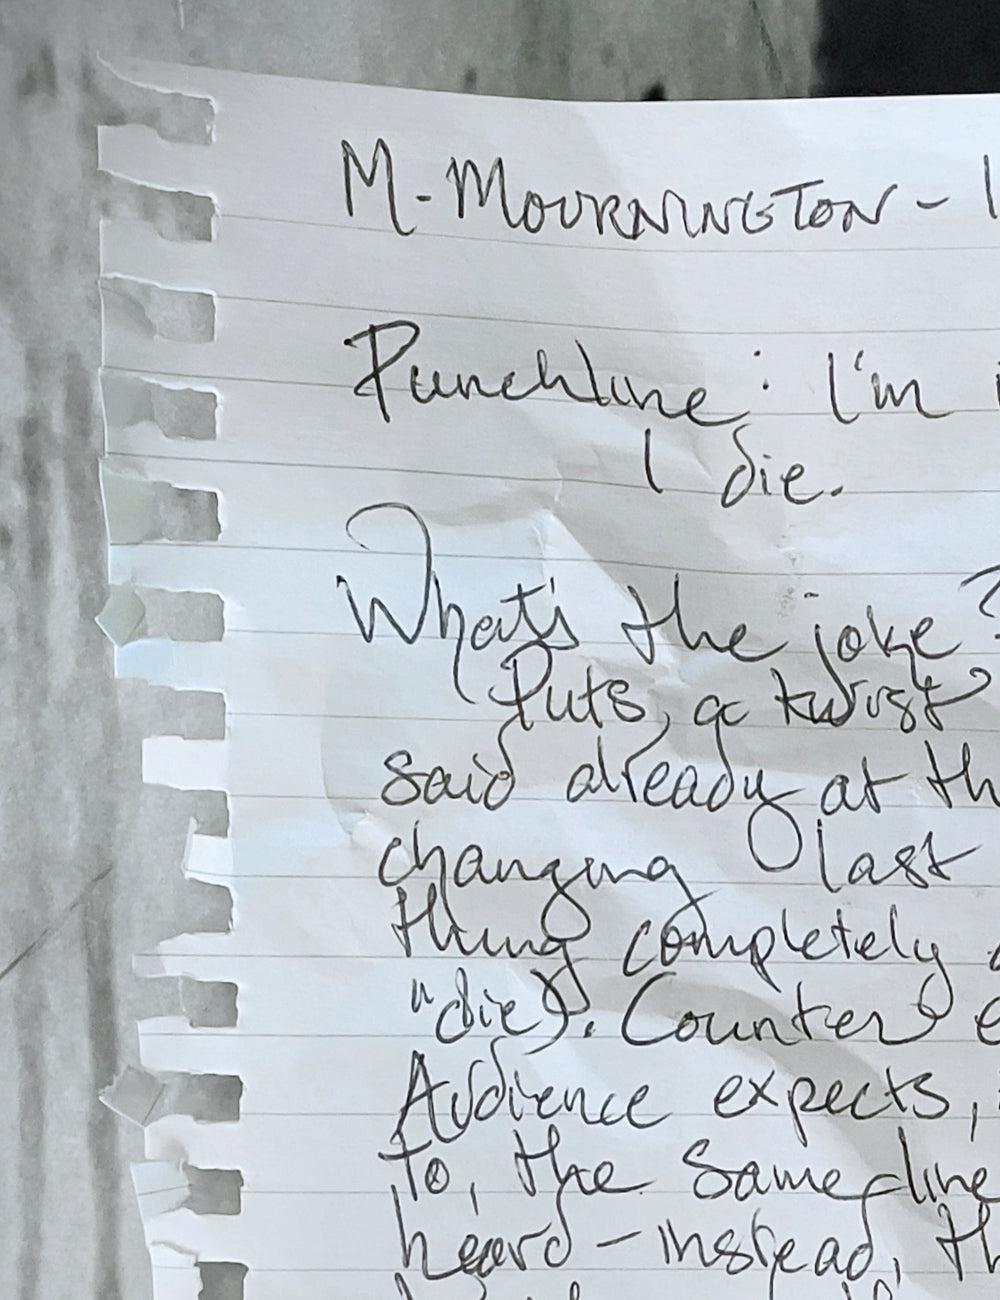 M. MOURNINGTON -
Punchline: I'm
I die.
What's the joke?
Puts, a twist
said already at th
changing last
thing completely
"die). Counter e
Audience expects,
to, the same line
heard - instead, th